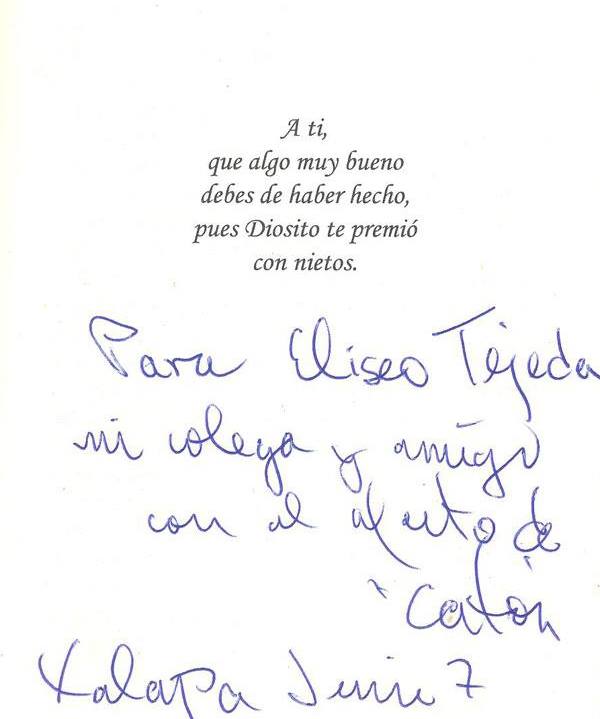 A ti,
que algo muy bueno
debes de haber hecho,
pues Diosito te premió
con nietos.
Para Eliseo Tejeda
mi colega y amigo
con el afecto de
"Catón"
Xalapa Junio 7